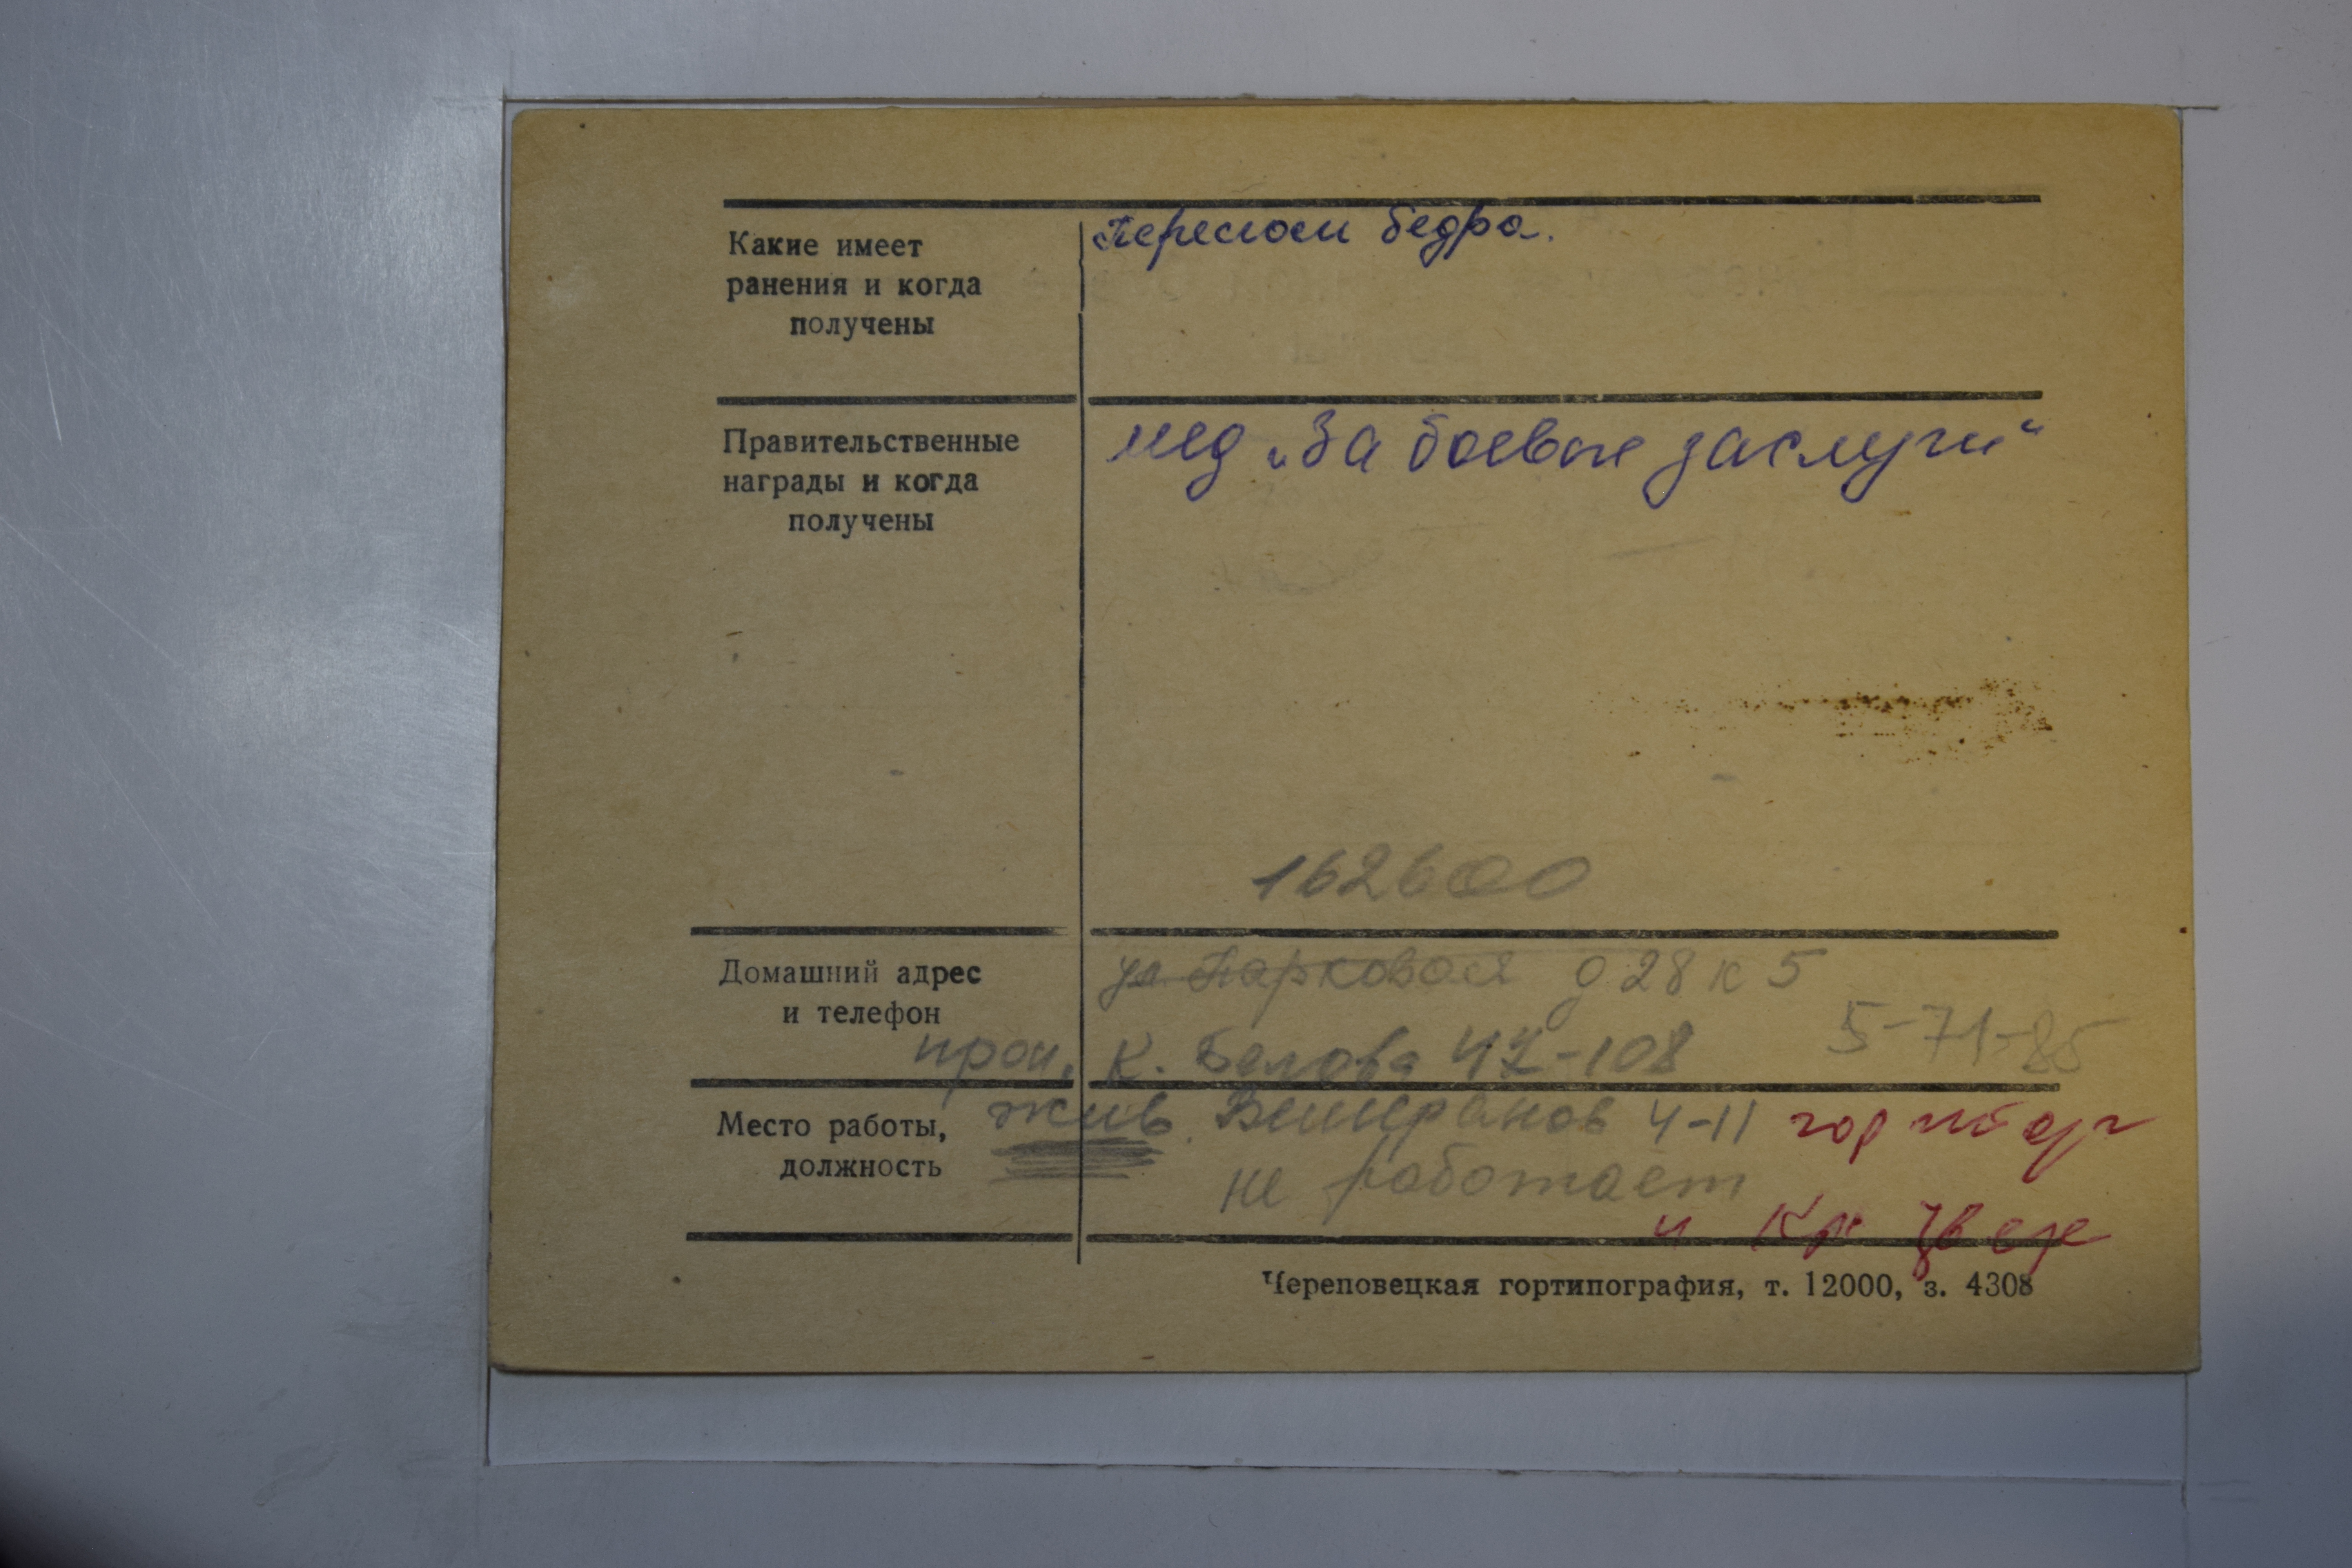 Какие имеет
ранения и когда
получены
Перелом бедра.
Правительственные
награды и когда
получены
мед „За боевые заслуги“
162600
Домашний адрес
и телефон
ул. Парковая д 28 к 5
5-71-85
К. Белова 42-108
Место работы,
должность
жив. Ветеранов 4-11 горторг
не работает
и Кр
Череповецкая гортипография, т. 12000, з. 4308